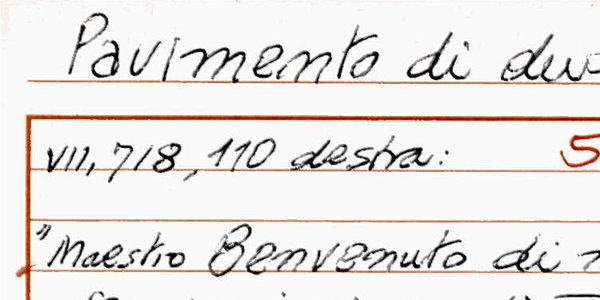 Pavimento di
VII, 7/8, 110 destra: 5
"Maestro Benvenuto di